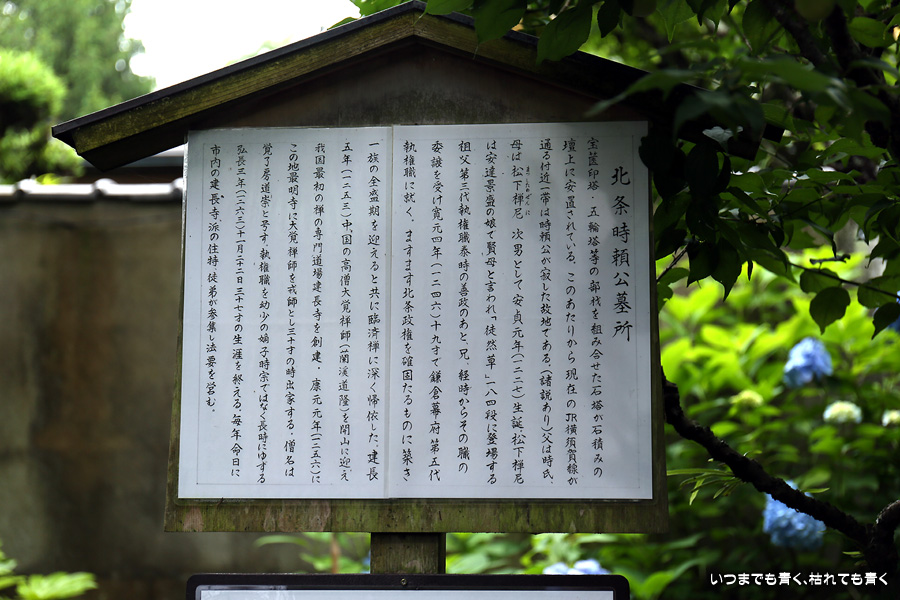 北条時頼公墓所
宝篋印塔・五輪塔等の部材を組み合せた石塔が石積みの
壇上に安置されている。このあたりから、現在のJR横須賀線が
通る付近一帯は時頼公が寂した故地である、(諸説あり)父は時氏、
母は、松下禅尼、次男として、安貞元年(一二二七)生誕、松下禅尼
まつしたぜんに
は安達景盛の娘で賢母と言われ、「徒然草」一八四段に登場する
祖父第三代執権職泰時の善政のあと、兄、経時からその職の
委譲を受け寛元年(一二四六)十九才で鎌倉幕府第五代
執権職に就く、ますます北条政権を確固たるものに築き
一族の全盛期を迎えると共に臨済禅に深く帰依した、建長
五年(一二五三)中国の高僧大覚禅師(蘭渓道隆)を開山に迎え
我国最初の禅の専門道場建長寺を創建、康元元年(一二五六)に
この地最明寺に大覚禅師を戒師とし三十才の時出家する、僧名は
覚了房道崇と号す、執権職を幼少の嫡子時宗ではなく長時にゆずる
弘長三年(一二六三)十一月二十二日三十七才の生涯を終える、毎年命日に
市内の建長寺派の住持、徒弟が参集し法要を営む。
いつまでも青く、枯れても青く